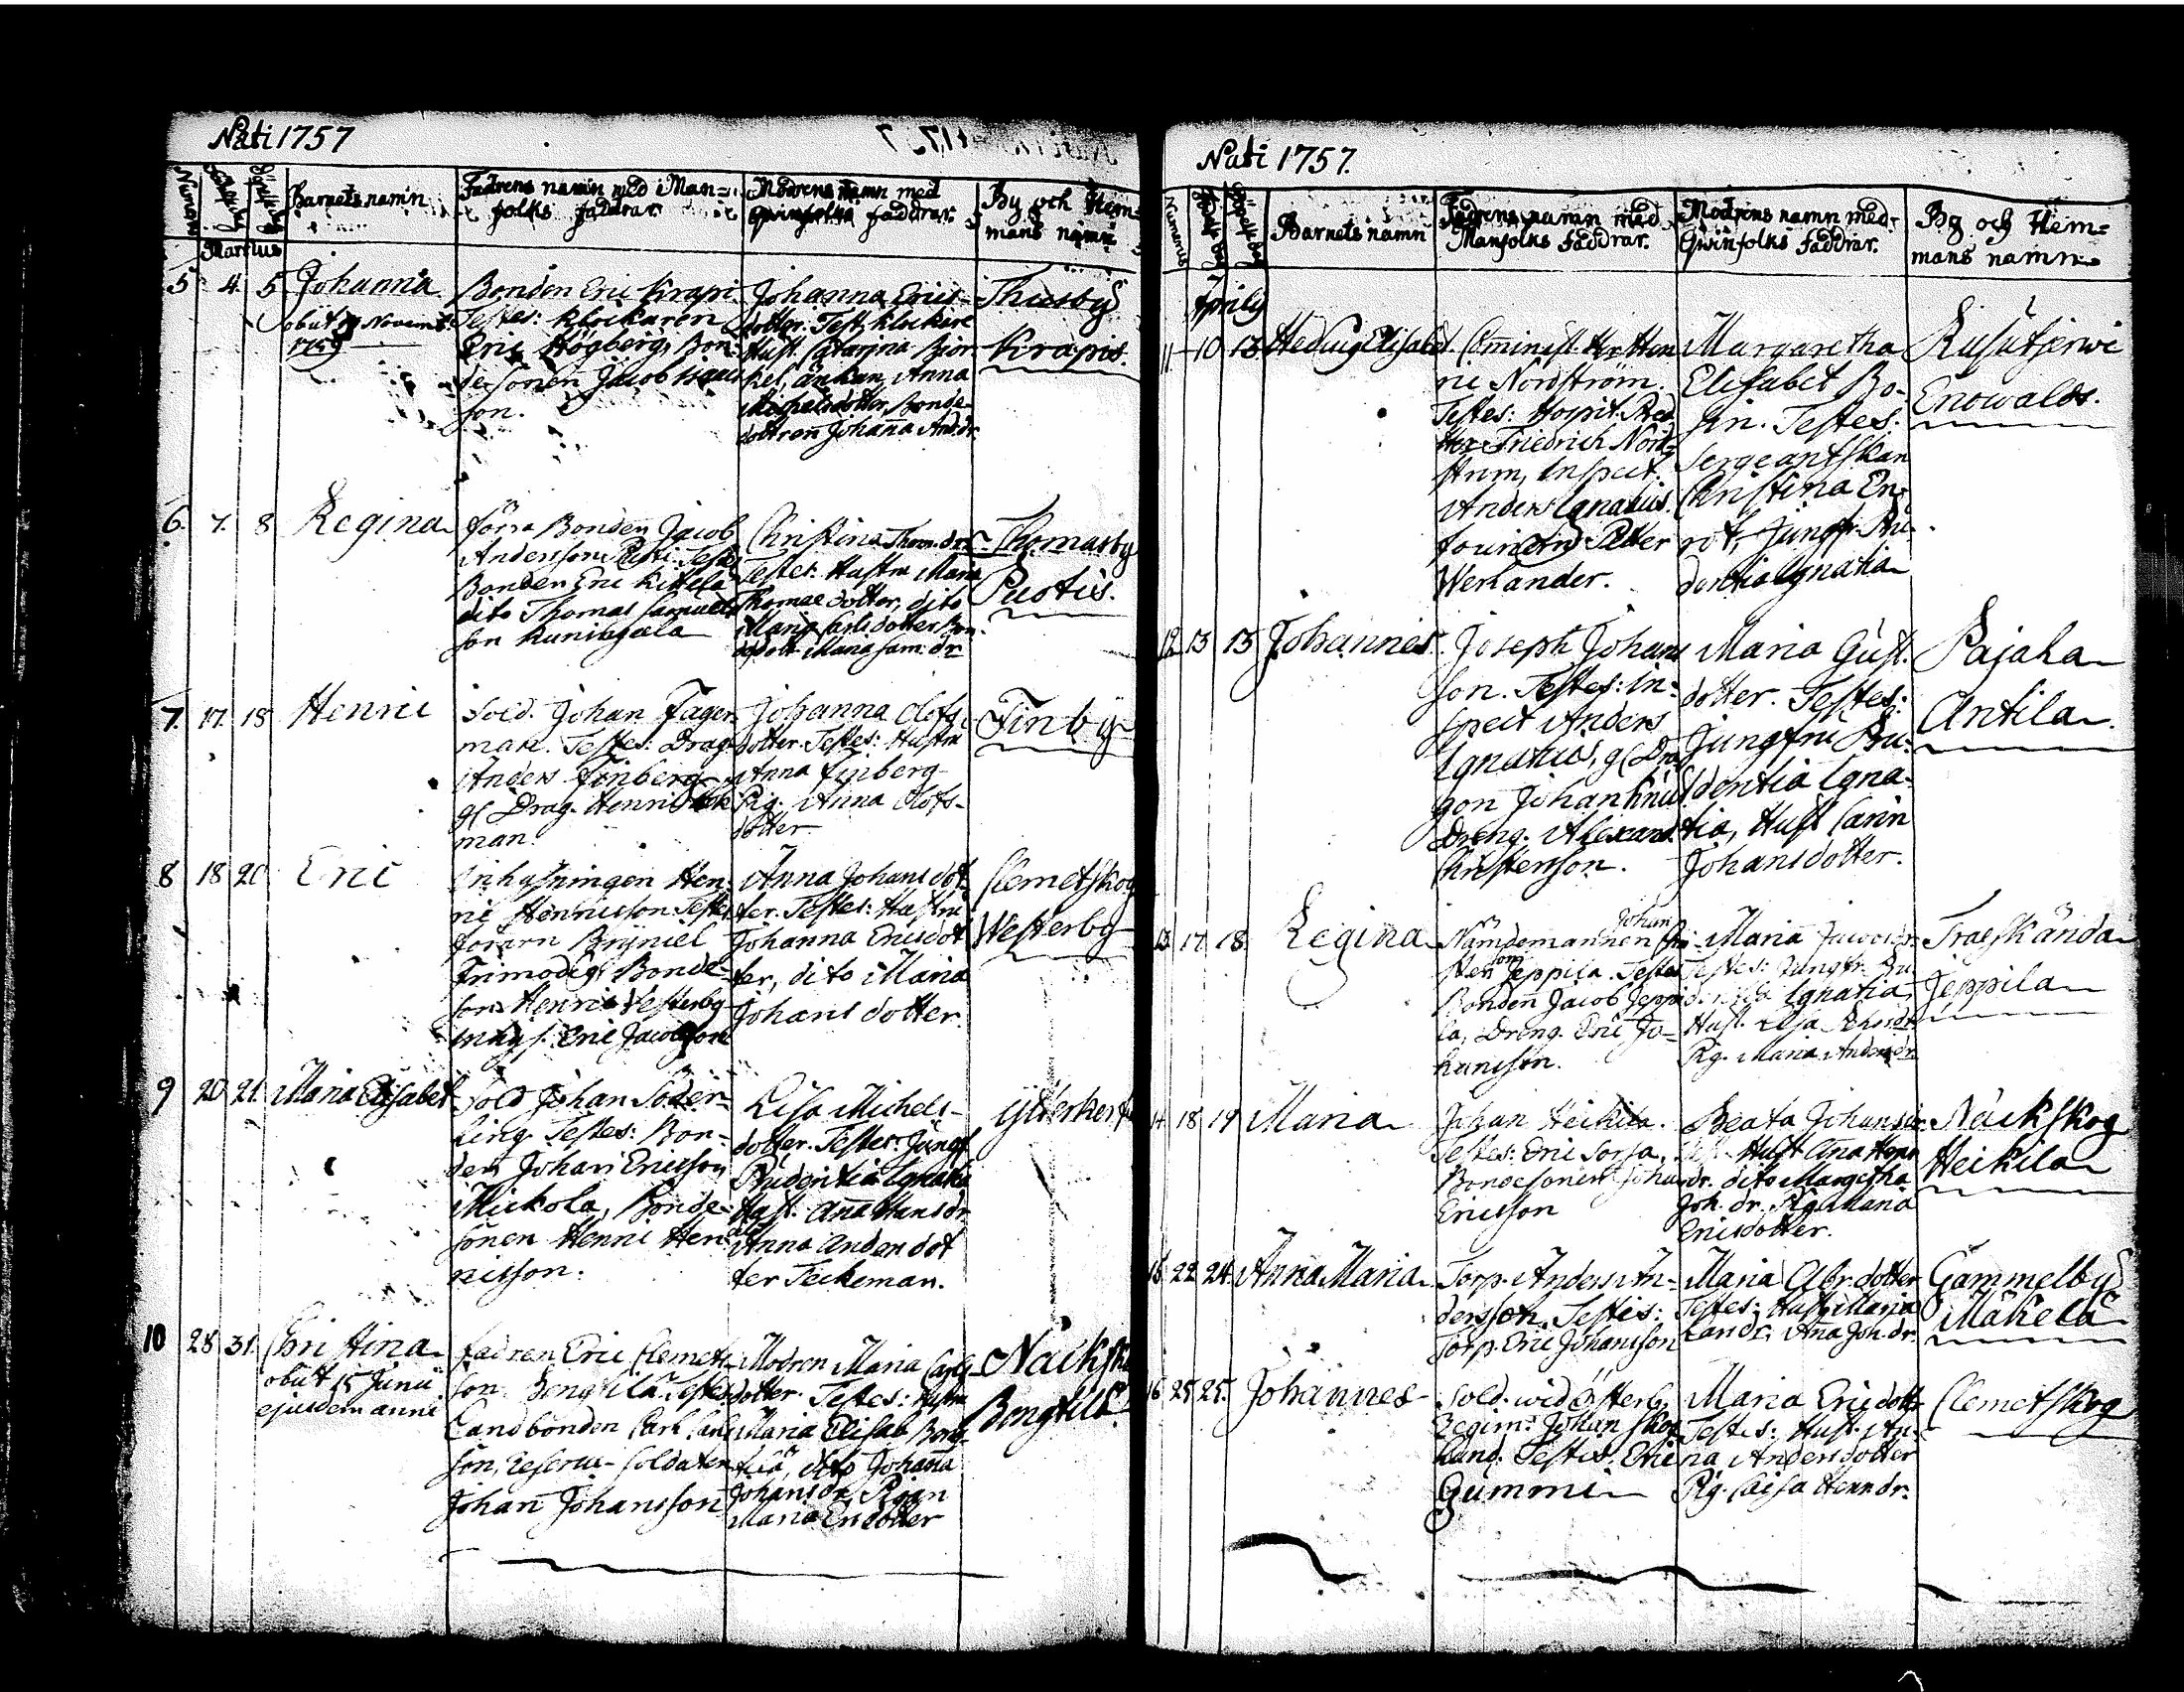 Nati 1757
Numerus
Barnets namn
Fadrens namn med Man-
folks faddrar.
Modrens namn med
Qwinfolks faddrar.
By och Hem-
mans namn
Martius
5 4 5 Johanna
obiit Novemb.
1759
Bonden Eric Krapi
Testes: Klockaren
Eric Högberg, Bon-
desonen Jacob Isaacs
son.
Johanna Erics-
dotter. Test. Klockare
Hust. Catarina Biör-
kel, änkan Anna
Michelsdotter, Bonde-
dottren Johanna And.dr
Thusby
Krapis.
6. 7. 8 Regina
förra Bonden Jacob
Andersson Testes
Bonden Eric Kittela
dito Thomas Samuels
son Kuningala
Christina Thom. dr
Testes: Hustru Maria
Thomae dotter, dito
Maria Carls dotter Bon-
dedott. Maria Sam. dr
Thomasby
Puotis.
7. 17. 18 Henric
Sold. Johan Fager-
man. Testes: Drag.
Anders Finberg
gl Drag. Henric
man
Johanna Olofs-
dotter. Testes: Hustru
Anna Finberg
Pig. Anna Olofs-
dotter
Finby
8 18 20 Eric
Inhysningen Hen-
ric Henricsson Testes
föraren Bryniel
Trimodig, Bonde-
son Henric Westerby
Inhys. Eric Jacobsson
Anna Johansdot-
ter. Testes: Hustru
Johanna Ericsdot
ter, dito Maria
Johansdotter.
Clemetskog
Westerby
9 20 21. Maria Elisabet
Sold Johan Söder-
ling Testes: Bon-
den Johan Ericsson
Mickola, Bonde-
sonen Henric Hen-
ricsson.
Lisa Michels-
dotter. Testes: Jungf
Prudentia Ignatia
Hust. Anna Hans dr
Anna Anders dot
ter Teckeman.
10 28 31. Christina
obiit 15 Junii
ejusdem anni
fadren Eric Clemets-
son Bengtilä Testes
Landbonden Carl Carls
son, Reserve-Soldaten
Johan Johansson
Modren Maria Carls-
dotter Testes: Hustru
Maria Elisab Beng-
tilä, dito Johanna
Johansdr, Pigan
Maria Ericsdotter
Näcksk
Bengtilä
Nati 1757.
Numerus
Barnets namn
Fadrens namn med
Manfolks faddrar.
Modrens namn med
Qwinfolks faddrar.
By och Hem-
mans namn
Aprilis
11 10 13 Hedwig Elisabet.
Comminist. Hr Hen
ric Nordström.
Testes: Hospit. Pred.
Herr Friedrich Nord-
ström, Inspect.
Anders Ignatius.
Petter
Werlander.
Margaretha
Elisabet Bo-
Testes.
Sergeantskan
Christina En-
rot, Jungfr. Pru-
dentia Ignatia
Rusutjerwi
Enowalds.
12 13 13 Johannes.
Joseph Johans
son. Testes: In-
spect Anders
Ignatius, gl Dra
gon Johan
Dreng. Alexand.
Christerson.
Maria Gust.
dotter. Testes:
Jungfru Pru-
dentia Igna-
tia, Hust Carin
Johansdotter.
Pajala
Antila
13 17 18 Regina
Johan
Nämdemannen
Jeppila. Testes
Bonden Jacob Jeppi
la, Dreng. Eric Jo-
hansson.
Maria Jacobsdr.
Testes: Jungfr. Pru
dentia Ignatia,
Hust. Lisa
Pig. Maria Andersdr.
Traeskända
Jeppila
14 18 19 Maria
Johan Heikila.
Testes: Eric Sorsa,
Bondesonen Johan
Ericsson
Beata Johansdr.
Hust Anna Henr
dr. dito Margetha
Joh. dr. Pig. Maria
Ericsdotter.
Näckskog
Heikila
15 22 24 Anna Maria
Torp. Anders An-
dersson. Testes:
Torp. Eric Johansson
Maria Abr. dotter
Testes: Hust. Maria
Anna Joh. dr.
Gammelby
Mäkelä
16 25 25. Johannes
Sold. wid Österb.
Regim: Johan Skog
lund. Testes. Eric
Gummi
Maria Ericsdott
Testes: Hust. An-
na Andersdotter
Pig. Caisa Henr dr.
Clemetskog